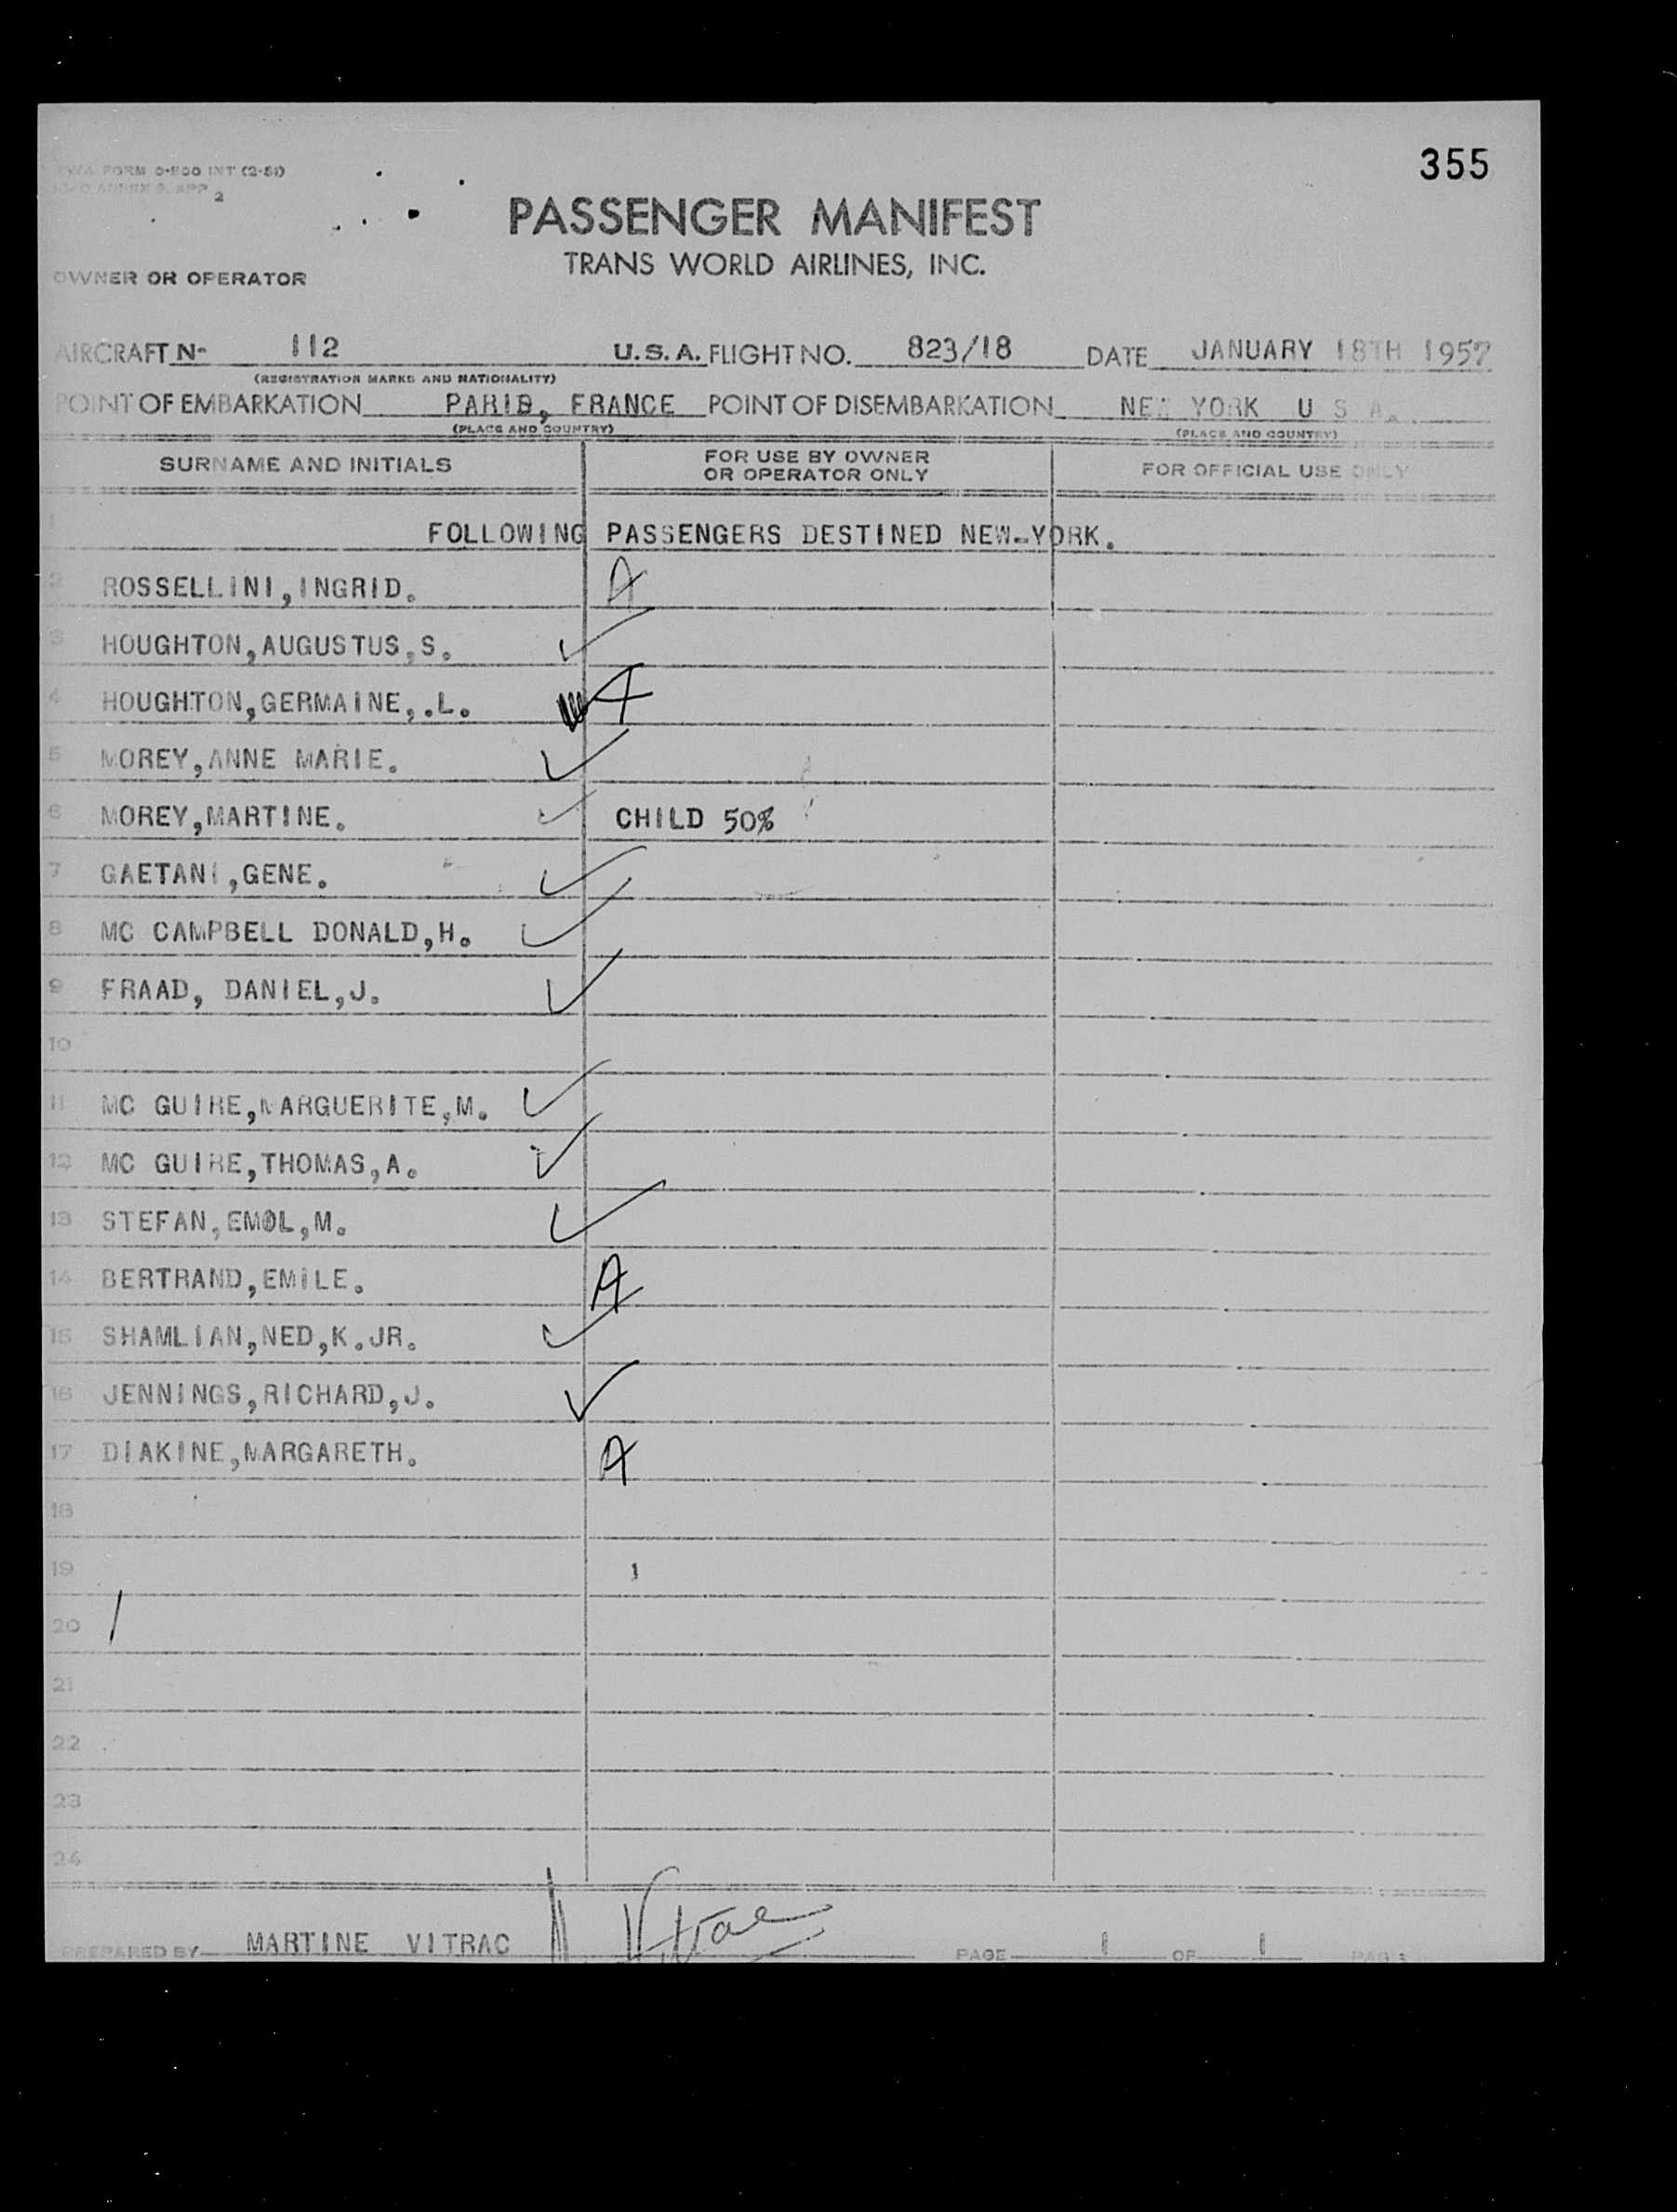 355
TWA FORM O-800 INT (2-51)
ICAO ANNEX 9, APP 2
PASSENGER MANIFEST
TRANS WORLD AIRLINES, INC.
OWNER OR OPERATOR
AIRCRAFT N- 112 U.S.A. FLIGHT NO. 823/18 DATE JANUARY 18TH 1957
(REGISTRATION MARKS AND NATIONALITY)
POINT OF EMBARKATION PARIS, FRANCE POINT OF DISEMBARKATION NEW YORK U S A.
(PLACE AND COUNTRY) (PLACE AND COUNTRY)
SURNAME AND INITIALS FOR USE BY OWNER OR OPERATOR ONLY FOR OFFICIAL USE ONLY
1 FOLLOWING PASSENGERS DESTINED NEW-YORK.
2 ROSSELLINI,INGRID. A
3 HOUGHTON,AUGUSTUS,S.
4 HOUGHTON,GERMAINE,.L. A
5 MOREY,ANNE MARIE.
6 MOREY,MARTINE. CHILD 50%
7 GAETANI,GENE.
8 MC CAMPBELL DONALD,H.
9 FRAAD, DANIEL,J.
10
11 MC GUIRE,MARGUERITE,M.
12 MC GUIRE,THOMAS,A.
13 STEFAN,EMOL,M.
14 BERTRAND,EMILE. A
15 SHAMLIAN,NED,K.JR.
16 JENNINGS,RICHARD,J.
17 DIAKINE,MARGARETH. A
18
19
20
21
22
23
24
PREPARED BY MARTINE VITRAC M Vitrac PAGE 1 OF 1 PAGES